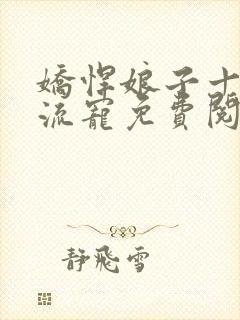 嬌悍娘子十
流寵免費閱
靜飛雪